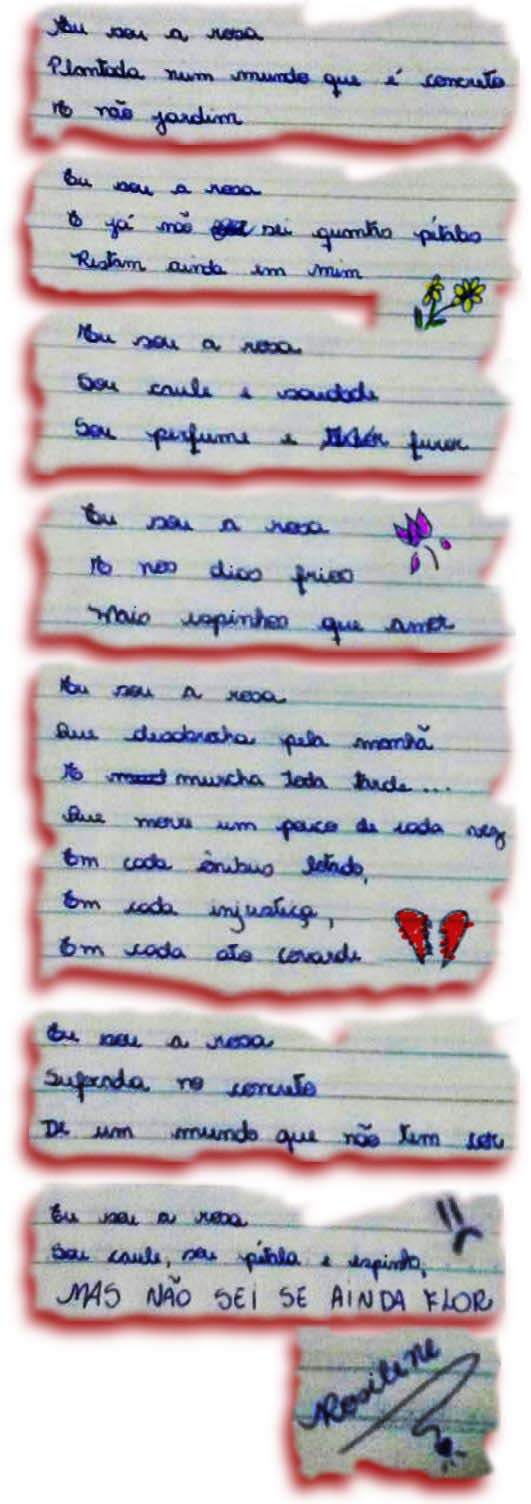 Eu sou a rosa
Plantada num mundo que é concreto
E não jardim
Eu sou a rosa
E já não sei quantas pétalas
Restam ainda em mim
Eu sou a rosa
Sou caule e saudade
Sou perfume e furor
Eu sou a rosa
E nos dias frios
Mais espinhos que amor
Eu sou a rosa
Que desabrocha pela manhã
E murcha toda tarde...
Que morre um pouco de cada vez
Em cada ônibus lotado,
Em cada injustiça,
Em cada ato covarde
Eu sou a rosa
Sufocada no concreto
De um mundo que não tem cor
Eu sou a rosa
Sou caule, sou pétala e espinho,
MAS NÃO SEI SE AINDA FLOR
Rosilene